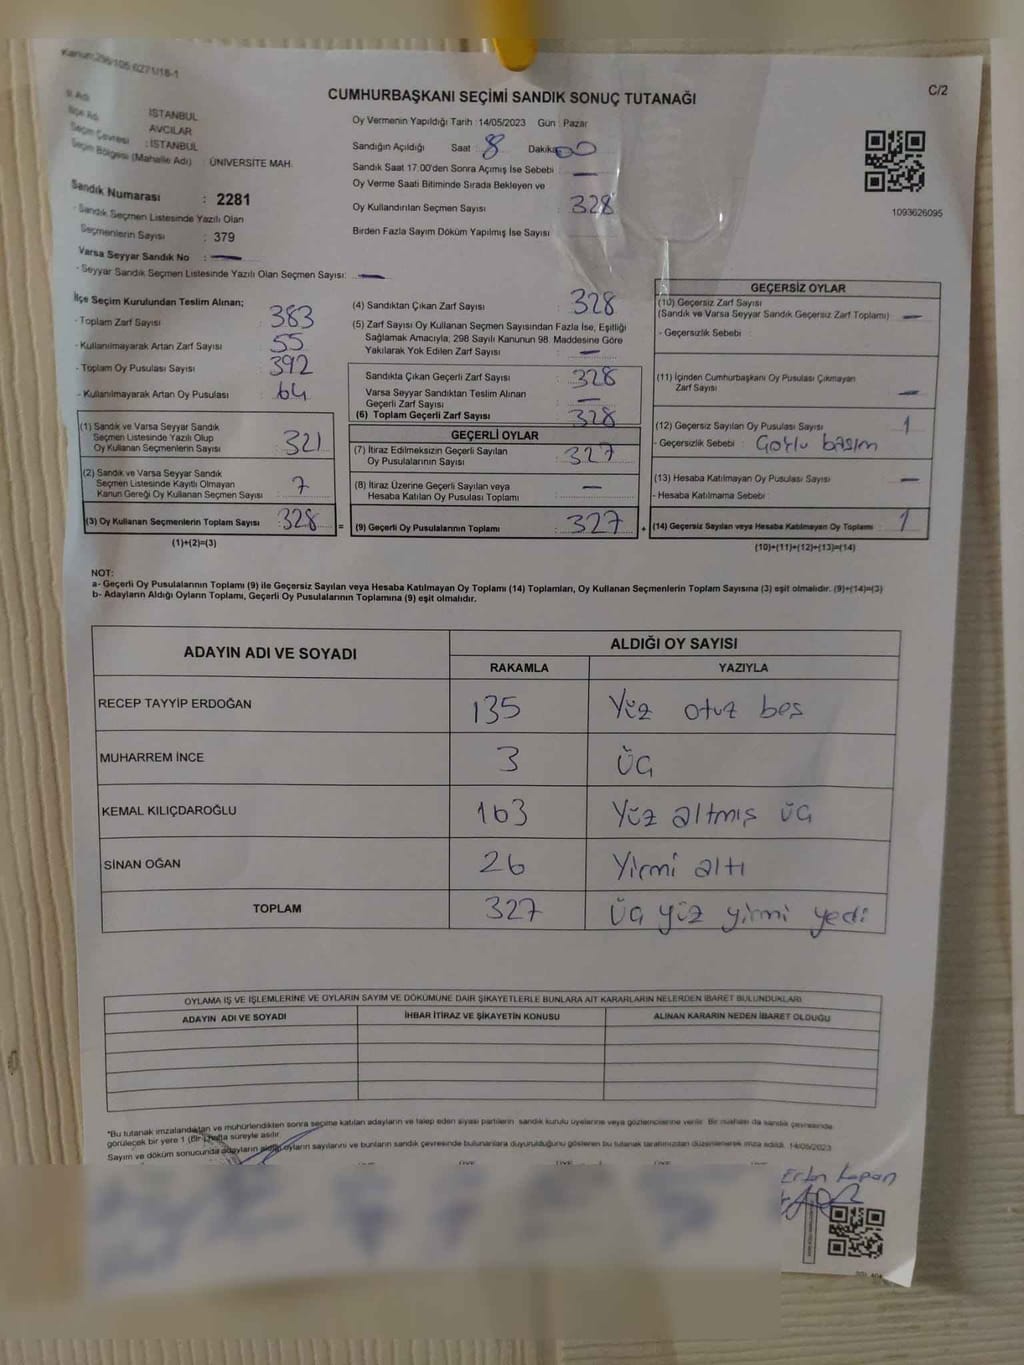 Kanun:298/105 6271/18-1
C/2
CUMHURBAŞKANI SEÇİMİ SANDIK SONUÇ TUTANAĞI
İl Adı
İSTANBUL
İlçe Adı
AVCILAR
Seçim Çevresi : İSTANBUL
Seçim Bölgesi (Mahalle Adı) : ÜNİVERSİTE MAH.
Sandık Numarası : 2281
- Sandık Seçmen Listesinde Yazılı Olan
Seçmenlerin Sayısı : 379
Varsa Seyyar Sandık No : —
- Seyyar Sandık Seçmen Listesinde Yazılı Olan Seçmen Sayısı: —
Oy Vermenin Yapıldığı Tarih : 14/05/2023 Gün : Pazar
Sandığın Açıldığı Saat : 8 Dakika 00
Sandık Saat 17:00'den Sonra Açımış İse Sebebi : —
Oy Verme Saati Bitiminde Sırada Bekleyen ve
Oy Kullandırılan Seçmen Sayısı : 328
Birden Fazla Sayım Döküm Yapılmış İse Sayısı
1093626095
İlçe Seçim Kurulundan Teslim Alınan;
- Toplam Zarf Sayısı : 383
- Kullanılmayarak Artan Zarf Sayısı : 55
- Toplam Oy Pusulası Sayısı : 392
- Kullanılmayarak Artan Oy Pusulası : 64
(1) Sandık ve Varsa Seyyar Sandık
Seçmen Listesinde Yazılı Olup
Oy Kullanan Seçmenlerin Sayısı : 321
(2) Sandık ve Varsa Seyyar Sandık
Seçmen Listesinde Kayıtlı Olmayan
Kanun Gereği Oy Kullanan Seçmen Sayısı : 7
(3) Oy Kullanan Seçmenlerin Toplam Sayısı : 328 =
(1)+(2)=(3)
(4) Sandıktan Çıkan Zarf Sayısı : 328
(5) Zarf Sayısı Oy Kullanan Seçmen Sayısından Fazla İse, Eşitliği
Sağlamak Amacıyla, 298 Sayılı Kanunun 98. Maddesine Göre
Yakılarak Yok Edilen Zarf Sayısı : —
Sandıkta Çıkan Geçerli Zarf Sayısı : 328
Varsa Seyyar Sandıktan Teslim Alınan
Geçerli Zarf Sayısı : —
(6) Toplam Geçerli Zarf Sayısı : 328
GEÇERLİ OYLAR
(7) İtiraz Edilmeksizin Geçerli Sayılan
Oy Pusulalarının Sayısı : 327
(8) İtiraz Üzerine Geçerli Sayılan veya
Hesaba Katılan Oy Pusulası Toplamı : —
(9) Geçerli Oy Pusulalarının Toplamı : 327 +
GEÇERSİZ OYLAR
(10) Geçersiz Zarf Sayısı
(Sandık ve Varsa Seyyar Sandık Geçersiz Zarf Toplamı) : —
- Geçersizlik Sebebi :
(11) İçinden Cumhurbaşkanı Oy Pusulası Çıkmayan
Zarf Sayısı : —
(12) Geçersiz Sayılan Oy Pusulası Sayısı : 1
- Geçersizlik Sebebi :
(13) Hesaba Katılmayan Oy Pusulası Sayısı : —
- Hesaba Katılmama Sebebi :
(14) Geçersiz Sayılan veya Hesaba Katılmayan Oy Toplamı : 1
(10)+(11)+(12)+(13)=(14)
NOT:
a- Geçerli Oy Pusulalarının Toplamı (9) ile Geçersiz Sayılan veya Hesaba Katılmayan Oy Toplamı (14) Toplamları, Oy Kullanan Seçmenlerin Toplam Sayısına (3) eşit olmalıdır. (9)+(14)=(3)
b- Adayların Aldığı Oyların Toplamı, Geçerli Oy Pusulalarının Toplamına (9) eşit olmalıdır.
ADAYIN ADI VE SOYADI
ALDIĞI OY SAYISI
RAKAMLA YAZIYLA
RECEP TAYYİP ERDOĞAN 135 Yüz otuz beş
MUHARREM İNCE 3 Üç
KEMAL KILIÇDAROĞLU 163 Yüz altmış üç
SİNAN OĞAN 26 Yirmi altı
TOPLAM 327 Üç yüz yirmi yedi
OYLAMA İŞ VE İŞLEMLERİNE VE OYLARIN SAYIM VE DÖKÜMÜNE DAİR ŞİKAYETLERLE BUNLARA AİT KARARLARIN NELERDEN İBARET BULUNDUKLARI
ADAYIN ADI VE SOYADI İHBAR İTİRAZ VE ŞİKAYETİN KONUSU ALINAN KARARIN NEDEN İBARET OLDUĞU
*Bu tutanak imzalandıktan ve mühürlendikten sonra seçime katılan adayların ve talep eden siyasi partilerin sandık kurulu üyelerine veya gözlemcilerine verilir. Bir nüshası da sandık çevresinde
görülecek bir yere 1 (Bir) hafta süreyle asılır.
Sayım ve döküm sonucunda adayların aldığı oyların sayılarını ve bunların sandık çevresinde bulunanlara duyurulduğunu gösteren bu tutanak tarafımızdan düzenlenerek imza edildi. 14/05/2023